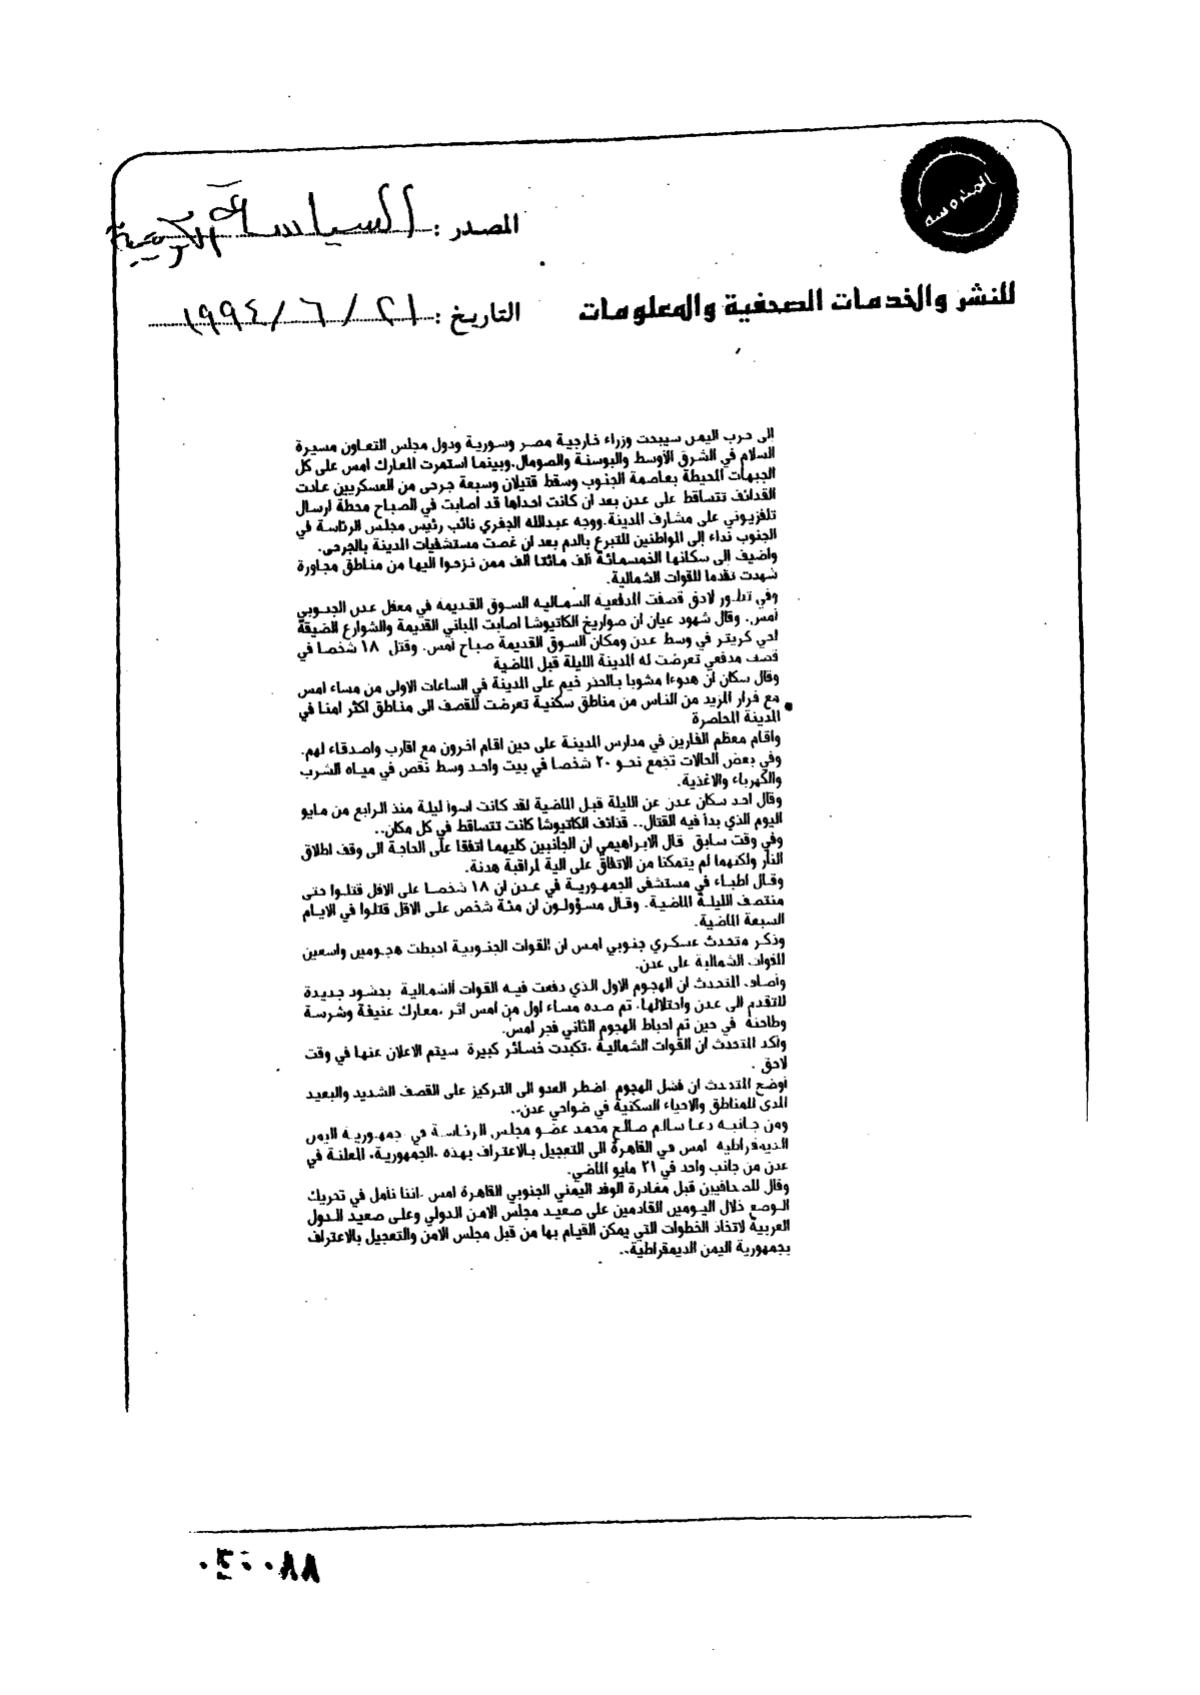 المصدر : السياسة الكويتية
للنشر والخدمات الصحفية والمعلومات
التاريخ : ٢١ / ٦ / ١٩٩٤
الى حرب اليمن سيبحث وزراء خارجية مصر وسورية ودول مجلس التعاون مسيرة
السلام في الشرق الأوسط والبوسنة والصومال.وبينما استمرت المعارك امس على كل
الجبهات المحيطة بعاصمة الجنوب وسقط قتيلان وسبعة جرحى من العسكريين عادت
القذائف تتساقط على عدن بعد ان كانت احداها قد اصابت في الصباح محطة ارسال
تلفزيوني على مشارف المدينة.ووجه عبدالله الجفري نائب رئيس مجلس الرئاسة في
الجنوب نداء إلى المواطنين للتبرع بالدم بعد ان غصت مستشفيات المدينة بالجرحى.
واضيف إلى سكانها الخمسمائة الف مائتا الف ممن نزحوا اليها من مناطق مجاورة
شهدت تقدما للقوات الشمالية.
وفي تطور لاحق قصفت المدفعية الشمالية السوق القديمة في معقل عدن الجنوبي
أمس. وقال شهود عيان ان صواريخ الكاتيوشا اصابت المباني القديمة والشوارع الضيقة
لحي كريتر في وسط عدن ومكان السوق القديمة صباح أمس. وقتل ١٨ شخصا في
قصف مدفعي تعرضت له المدينة الليلة قبل الماضية
وقال سكان ان هدوءا مشوبا بالحذر خيم على المدينة في الساعات الاولى من مساء امس
مع فرار المزيد من الناس من مناطق سكنية تعرضت للقصف الى مناطق اكثر امنا في
المدينة المحاصرة
واقام معظم الفارين في مدارس المدينة على حين اقام اخرون مع اقارب واصدقاء لهم.
وفي بعض الحالات تجمع نحو ٢٠ شخصا في بيت واحد وسط نقص في مياه الشرب
والكهرباء والاغذية.
وقال احد سكان عدن عن الليلة قبل الماضية لقد كانت اسوأ ليلة منذ الرابع من مايو
اليوم الذي بدأ فيه القتال.. قذائف الكاتيوشا كانت تتساقط في كل مكان..
وفي وقت سابق قال الابراهيمي ان الجانبين كليهما اتفقا على الحاجة الى وقف اطلاق
النار ولكنهما لم يتمكنا من الاتفاق على الية لمراقبة هدنة.
وقال اطباء في مستشفى الجمهورية في عدن ان ١٨ شخصا على الاقل قتلوا حتى
منتصف الليلة الماضية. وقال مسؤولون ان مئة شخص على الاقل قتلوا في الايام
السبعة الماضية.
وذكر متحدث عسكري جنوبي امس ان القوات الجنوبية احبطت هجومين واسعين
للقوات الشمالية على عدن.
وأضاف المتحدث ان الهجوم الاول الذي دفعت فيه القوات الشمالية بحشود جديدة
للتقدم الى عدن واحتلالها، تم صده مساء اول من امس اثر ،معارك عنيفة وشرسة
وطاحنة في حين تم احباط الهجوم الثاني فجر امس.
وأكد المتحدث ان القوات الشمالية ،تكبدت خسائر كبيرة سيتم الاعلان عنها في وقت
لاحق .
أوضح المتحدث ان فشل الهجوم اضطر العدو الى التركيز على القصف الشديد والبعيد
المدى للمناطق والاحياء السكنية في ضواحي عدن..
ومن جانبه دعا سالم صالح محمد عضو مجلس الرئاسة في جمهورية اليمن
الديمقراطية امس في القاهرة الى التعجيل بالاعتراف بهذه ،الجمهورية، المعلنة في
عدن من جانب واحد في ٢١ مايو الماضي.
وقال للصحافيين قبل مغادرة الوفد اليمني الجنوبي القاهرة امس ،اننا نأمل في تحريك
الوضع خلال اليومين القادمين على صعيد مجلس الامن الدولي وعلى صعيد الدول
العربية لاتخاذ الخطوات التي يمكن القيام بها من قبل مجلس الامن والتعجيل بالاعتراف
بجمهورية اليمن الديمقراطية..